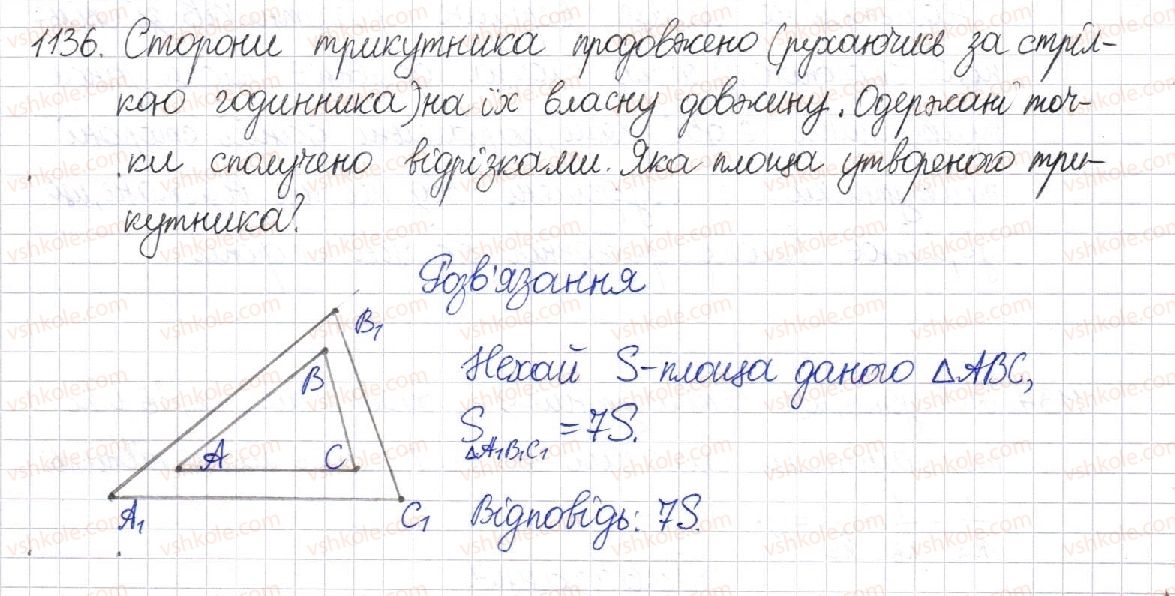 1136. Сторони трикутника продовжено (рухаючись за стріл-
кою годинника) на їх власну довжину. Одержані точ-
ки сполучено відрізками. Яка площа утвореного три-
кутника?
Розв'язання
Нехай S - площа даного △ABC,
S△A₁B₁C₁ = 7S.
Відповідь: 7S.
B₁
B
A
C
A₁
C₁
vshkole.com